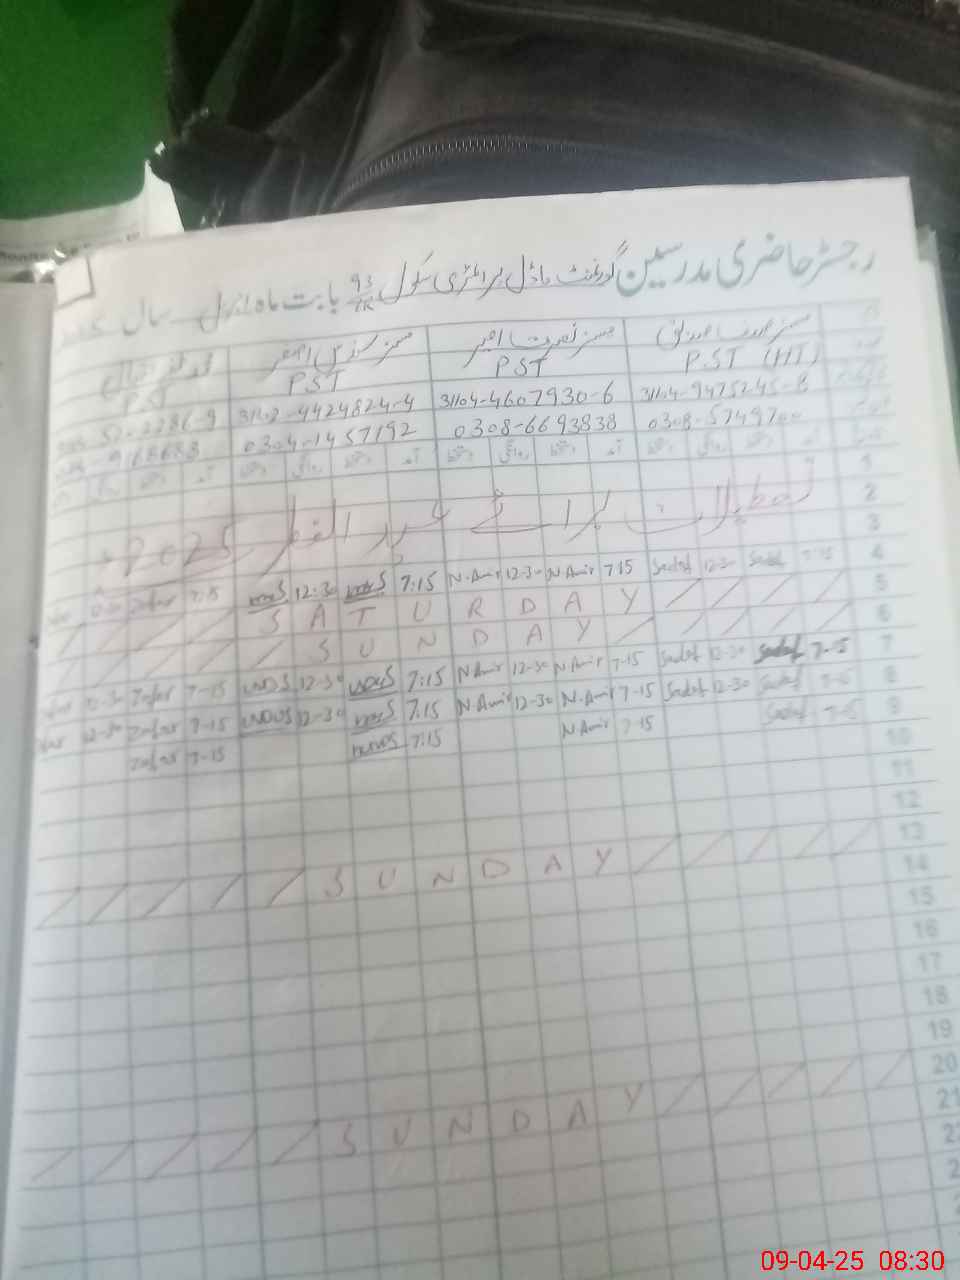 رجسٹر حاضری مدرسین گورنمنٹ ماڈل پرائمری سکول 93/TR بابت ماہ اپریل سال
مسز صدف صدیق مسز نصرت امیر مسز
PST (HT) PST PST PST
31104-9475245-8 31104-4607930-6 31102-4424824-4 52-2286-9
0308-5749700 0308-6693838 0304-1457192 9168688
آمد دستخط روانگی دستخط آمد دستخط روانگی دستخط آمد دستخط روانگی دستخط آمد دستخط روانگی
1
2 تعطیلات برائے عید الفطر 2025
3
Zafar 7:15 12:30 7:15 N.Amir 12-30 N.Amir 7:15 Sadaf 12-30 Sadaf 7:15 4
S A T U R D A Y 5
S U N D A Y 6
12-30 Zafar 7-15 12-30 7:15 N.Amir 12-30 N.Amir 7-15 Sadaf 12-30 Sadaf 7-15 7
12-30 Zafar 7-15 12-30 7:15 N.Amir 12-30 N.Amir 7-15 Sadaf 12-30 Sadaf 7-15 8
Zafar 7-15 7:15 N Amir 7-15 Sadaf 7-15 9
10
11
12
S U N D A Y 13
14
15
16
17
18
19
S U N D A Y 20
21
09-04-25 08:30